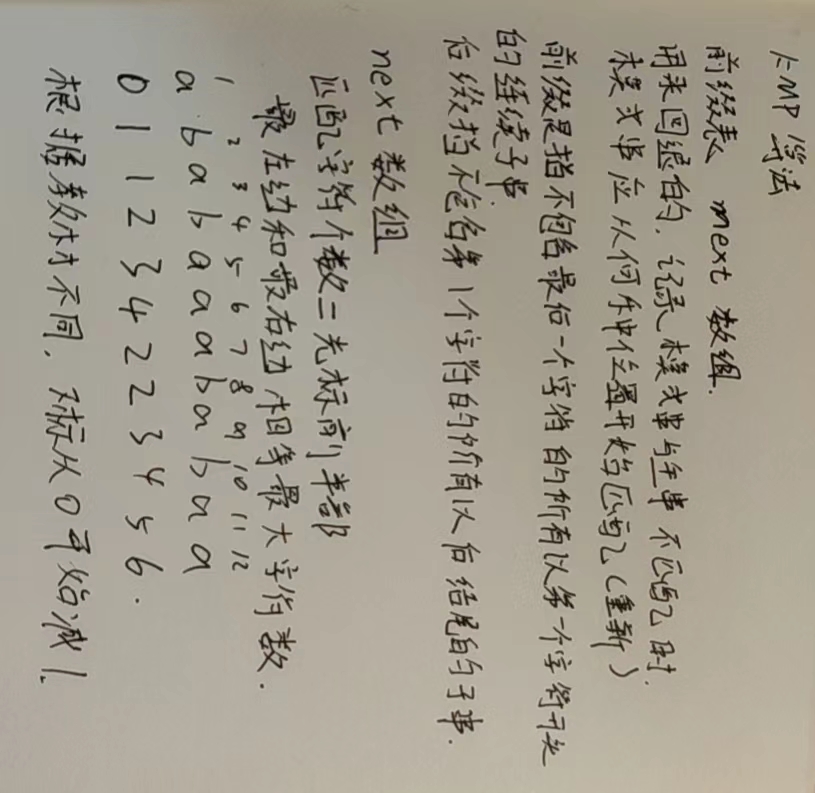 KMP 算法
前缀表 next 数组.
用来回退的, 记录模式串与主串不匹配时.
模式串应从何种位置开始匹配(重新)
前缀是指不包含最后一个字符的所有以第一个字符开头
的连续子串.
后缀指不包含第1个字符的所有以后结尾的子串.
next 数组
匹配字符个数=光标前半部
最左边和最右边相等最大字符数.
1 2 3 4 5 6 7 8 9 10 11 12
a b a b a a a b a b a a
0 1 1 2 3 4 2 2 3 4 5 6.
根据教材不同, 下标从0开始减1.